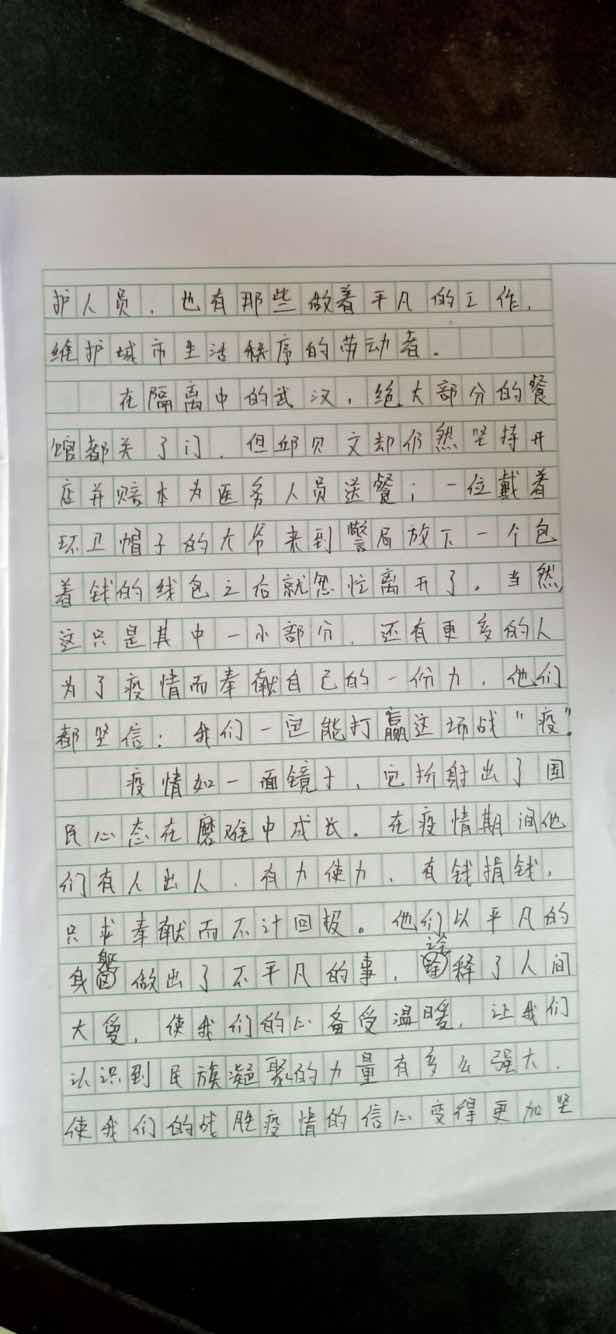 护人员，也有那些做着平凡的工作，
维护城市生活秩序的劳动者。
在隔离中的武汉，绝大部分的餐
馆都关了门，但邱贝文却仍然坚持开
店并赔本为医务人员送餐；一位戴着
环卫帽子的大爷来到警局放下一个包
着钱的线包之后就忽忙离开了。当然
这只是其中一小部分，还有更多的人
为了疫情而奉献自己的一份力，他们
都坚信：我们一定能打赢这场战“疫”
疫情如一面镜子，它折射出了国
民心态在磨难中成长。在疫情期间他
们有人出人、有力使力、有钱捐钱，
只求奉献而不计回报。他们以平凡的
身躯做出了不平凡的事，诠释了人间
大爱，使我们的心备受温暖，让我们
认识到民族凝聚的力量有多么强大，
使我们的战胜疫情的信心变得更加坚